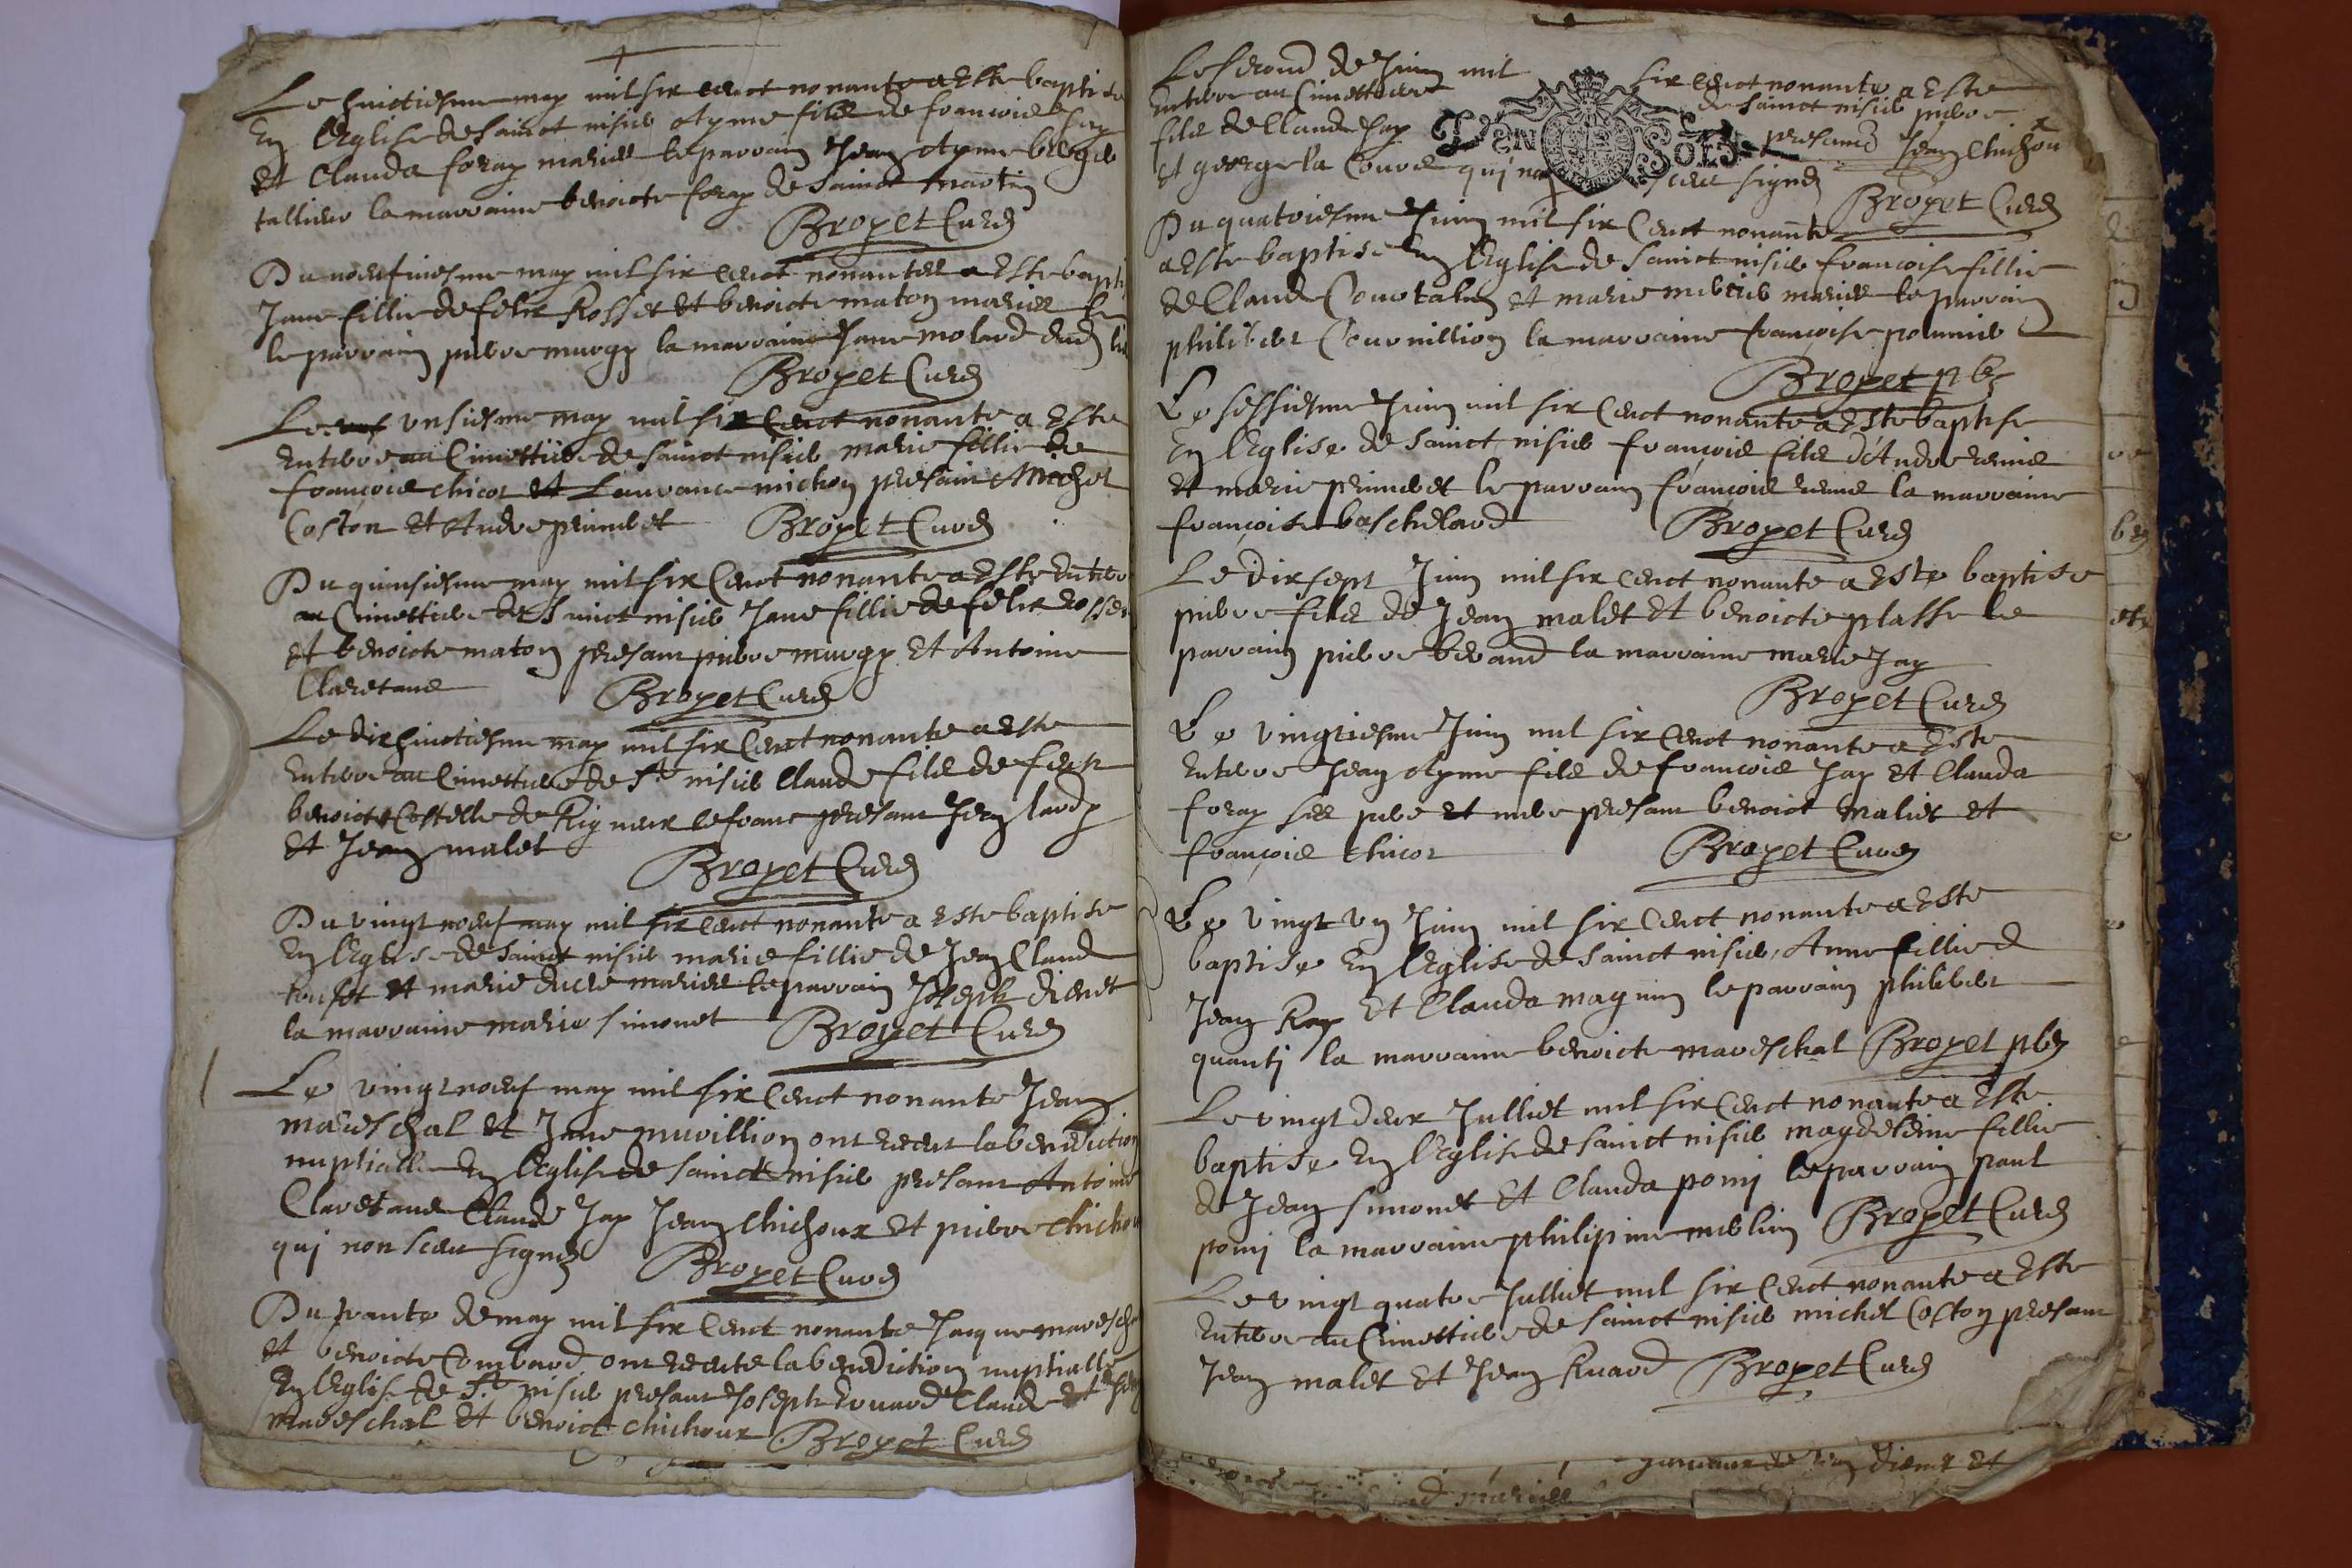 Le huictiesme may mil six cenct nonante a Este baptise
En l'Eglise de Sainct nisié Ayme filz de francois Jay
Et Clauda foray mariés le parrain Jean Ayme
tallieur la marraine benoicte foray de Sainct martin
Broyet Curé
Du noeufviesme may mil six cenct nonantes a Este bapti
Jane fillie de felix Rosset Et benoicte maton mariés le
le parrain pierre murgy la marraine Jane molard dud li
Broyet Curé
Le unsiesme may mil six Cenct nonante a Este
Enterre au Cimettiere de sainct nisié marie fillie de
françois chicot Et Laurance michon presant Michel
Coston Et Andre primbet Broyet Curé
Du quinsiesme may mil six Cenct nonante a Este Enterre
au Cimettiere de Sainct nisié Jane fillie de felix Rosset
Et benoicte maton presant pierre murgy Et Antoine
Claretane Broyet Curé
Le dixhuictiesme may mil six Cenct nonante a Este
Enterre au Cimettiere de St nisié Claude filz de feux
benoict Costelle de Rigneux le franc presant Jean lardy
Et Jean malet
Broyet Curé
Du vingt noeuf may mil six Cenct nonante a Este baptise
En l'Eglise de Sainct nisié marie fillie de Jean Claude
Et marie ducre mariés le parrain Joseph dienet
la marraine marie simonet Broyet Curé
Le vingt noeuf may mil six Cenct nonante Jean
mareschal Et Jane muvillion ont receu la benediction
nuptialle En l'Eglise de sainct nisié presant Antoine
Claretane Claude Jay Jean Chichoux Et pierre chichou
qui non sceu signez Broyet Curé
Du trante de may mil six Cenct nonante Jacque maresch
Et benoicte Combard ont receu la benediction nuptialle
En l'Eglise de St nisié presant Joseph Evrard Claude Et Jean
mareschal Et benoict chichoux Broyet Curé
Le second de Juin mil six cenct nonante a Este
Enterre au Cimettiere de Sainct nisié pierre
filz de Claude Jay presans Jean Chichou
Et george la Coure qui non sceu signez
D'EN SOLS
Broyet Curé
Du quatoiesme Juin mil six Cenct nonante
a Este baptise En l'Eglise de Sainct nisié francoise fillie
de Claude Courtalin Et marie mercié mariés le parrain
philibert Cournillion la marraine francoise pommié
Broyet pbr
Le sessiesme Juin mil six Cenct nonante a Este baptise
En l'Eglise de Sainct nisié françois filz d'Andre
Et marie primbet le parrain françois la marraine
françoise baschelard Broyet Curé
Le dixsept Juin mil six Cenct nonante a Este baptise
pierre filz de Jean malet Et benoicte plasse le
parrain pierre berand la marraine marie Jay
Broyet Curé
Le vingtiesme Juin mil six Cenct nonante a Este
Enterre Jean Ayme filz de francois Jay Et Clauda
foray ses pere et mere presant benoict malet Et
françois Chicot Broyet Curé
Le vingt Un Juin mil six Cenct nonante a Este
baptise En l'Eglise de Sainct nisié Anne fillie de
Jean Ray Et Clauda magnin le parrain philibert
quanti la marraine benoicte mareschal Broyet pbr
Le vingt deux Julliet mil six Cenct nonante a Este
baptise En l'Eglise de Sainct nisié magdeleine fillie
de Jean simonet Et Clauda pomi le parrain paul
pomi la marraine philipine merlin Broyet Curé
Le vingt quatre Julliet mil six Cenct nonante a Este
Enterre au Cimettiere de Sainct nisié michel Coston presant
Jean malet Et Jean Ruard Broyet Curé